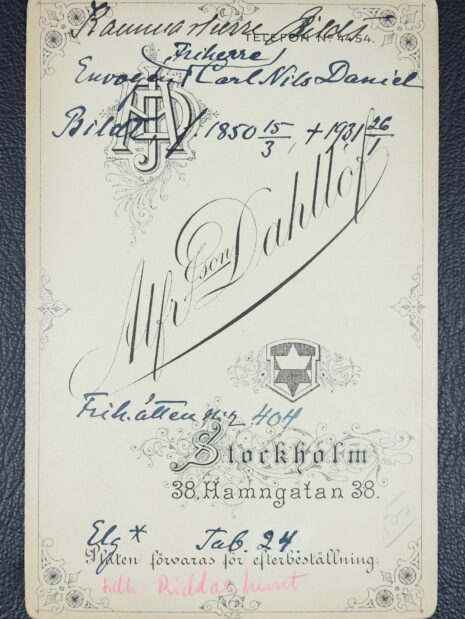 Kammarherre Bildt
TELEFON No 4454.
Friherre
Envoyen Carl Nils Daniel
Bildt, 1850 15/3, + 1931 26/1
AJD
Alfr. J:son Dahllöf
Frih.ätten nr 404
Stockholm
38, Hamngatan 38.
Elg* Tab. 24
Plåten förvaras för efterbeställning.
tillh. Riddarhuset